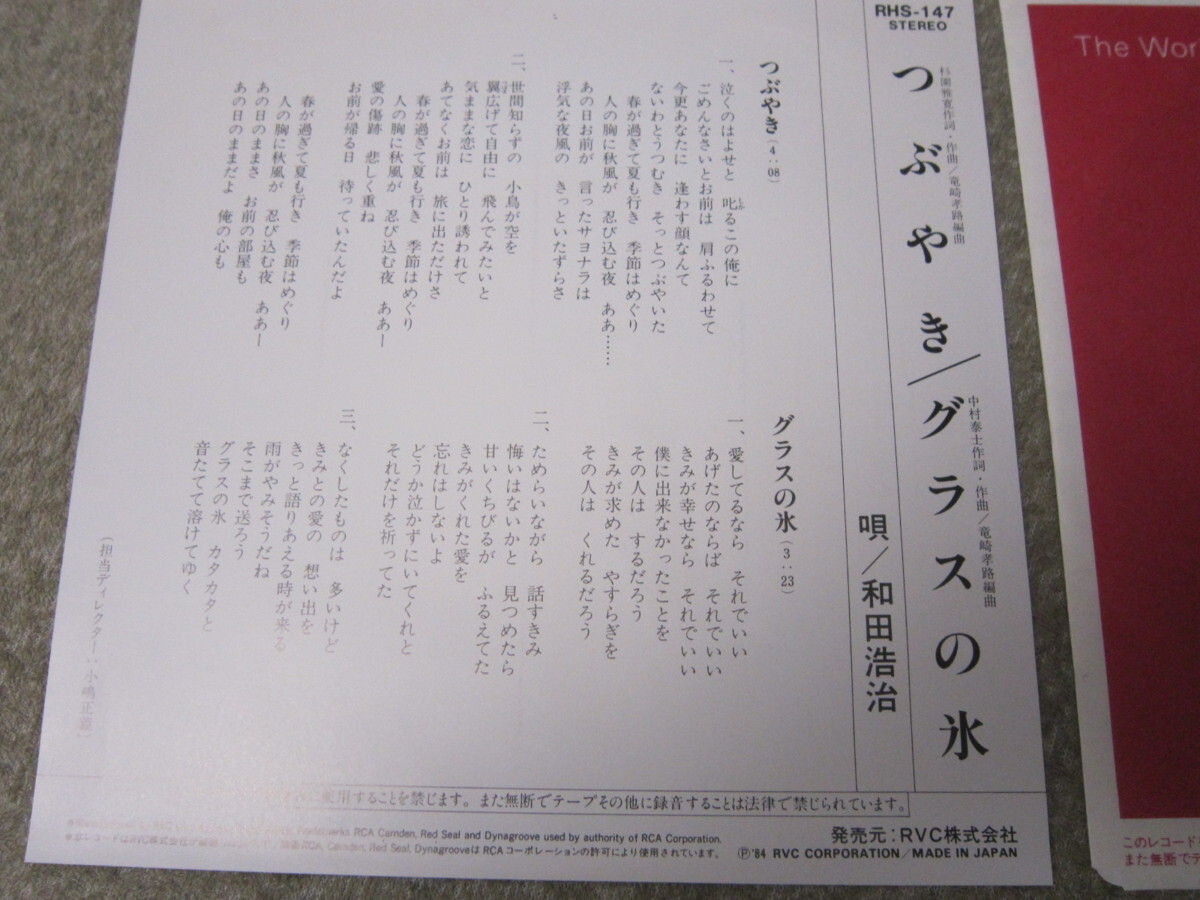 RHS-147
STEREO
つぶやき/グラスの氷
杉園雅寛作詞・作曲/竜崎孝路編曲
中村泰士作詞・作曲/竜崎孝路編曲
唄/和田浩治
つぶやき(4:08)
一、泣くのはよせと 叱るこの俺に
ごめんなさいとお前は 肩ふるわせて
今更あなたに 逢わす顔なんて
ないわとうつむき そっとつぶやいた
春が過ぎて夏も行き 季節はめぐり
人の胸に秋風が 忍び込む夜 ああ……
あの日お前が 言ったサヨナラは
浮気な夜風の きっといたずらさ
二、世間知らずの 小鳥が空を
翼広げて自由に 飛んでみたいと
気ままな恋に ひとり誘われて
あてなくお前は 旅に出ただけさ
春が過ぎて夏も行き 季節はめぐり
人の胸に秋風が 忍び込む夜 ああー
愛の傷跡 悲しく重ね
お前が帰る日 待っていたんだよ
春が過ぎて夏も行き 季節はめぐり
人の胸に秋風が 忍び込む夜 ああー
あの日のままさ お前の部屋も
あの日のままだよ 俺の心も
グラスの氷(3:23)
一、愛してるなら それでいい
あげたのならば それでいい
きみが幸せなら それでいい
僕に出来なかったことを
その人は するだろう
きみが求めた やすらぎを
その人は くれるだろう
二、ためらいながら 話すきみ
悔いはないかと 見つめたら
甘いくちびるが ふるえてた
きみがくれた愛を
忘れはしないよ
どうか泣かずにいてくれと
それだけを祈ってた
三、なくしたものは 多いけど
きみとの愛の 想い出を
きっと語りあえる時が来る
雨がやみそうだね
そこまで送ろう
グラスの氷 カタカタと
音たてて溶けてゆく
(担当ディレクター:小嶋正雄)
使用することを禁じます。また無断でテープその他に録音することは法律で禁じられています。
RCA Camden, Red Seal and Dynagroove used by authority of RCA Corporation.
RCA Camden, Red Seal, DynagrooveはRCAコーポレーションの許可により使用されています。
発売元:RVC株式会社
Ⓟ'84 RVC CORPORATION/MADE IN JAPAN
The Wor
このレコードを
また無断でテ